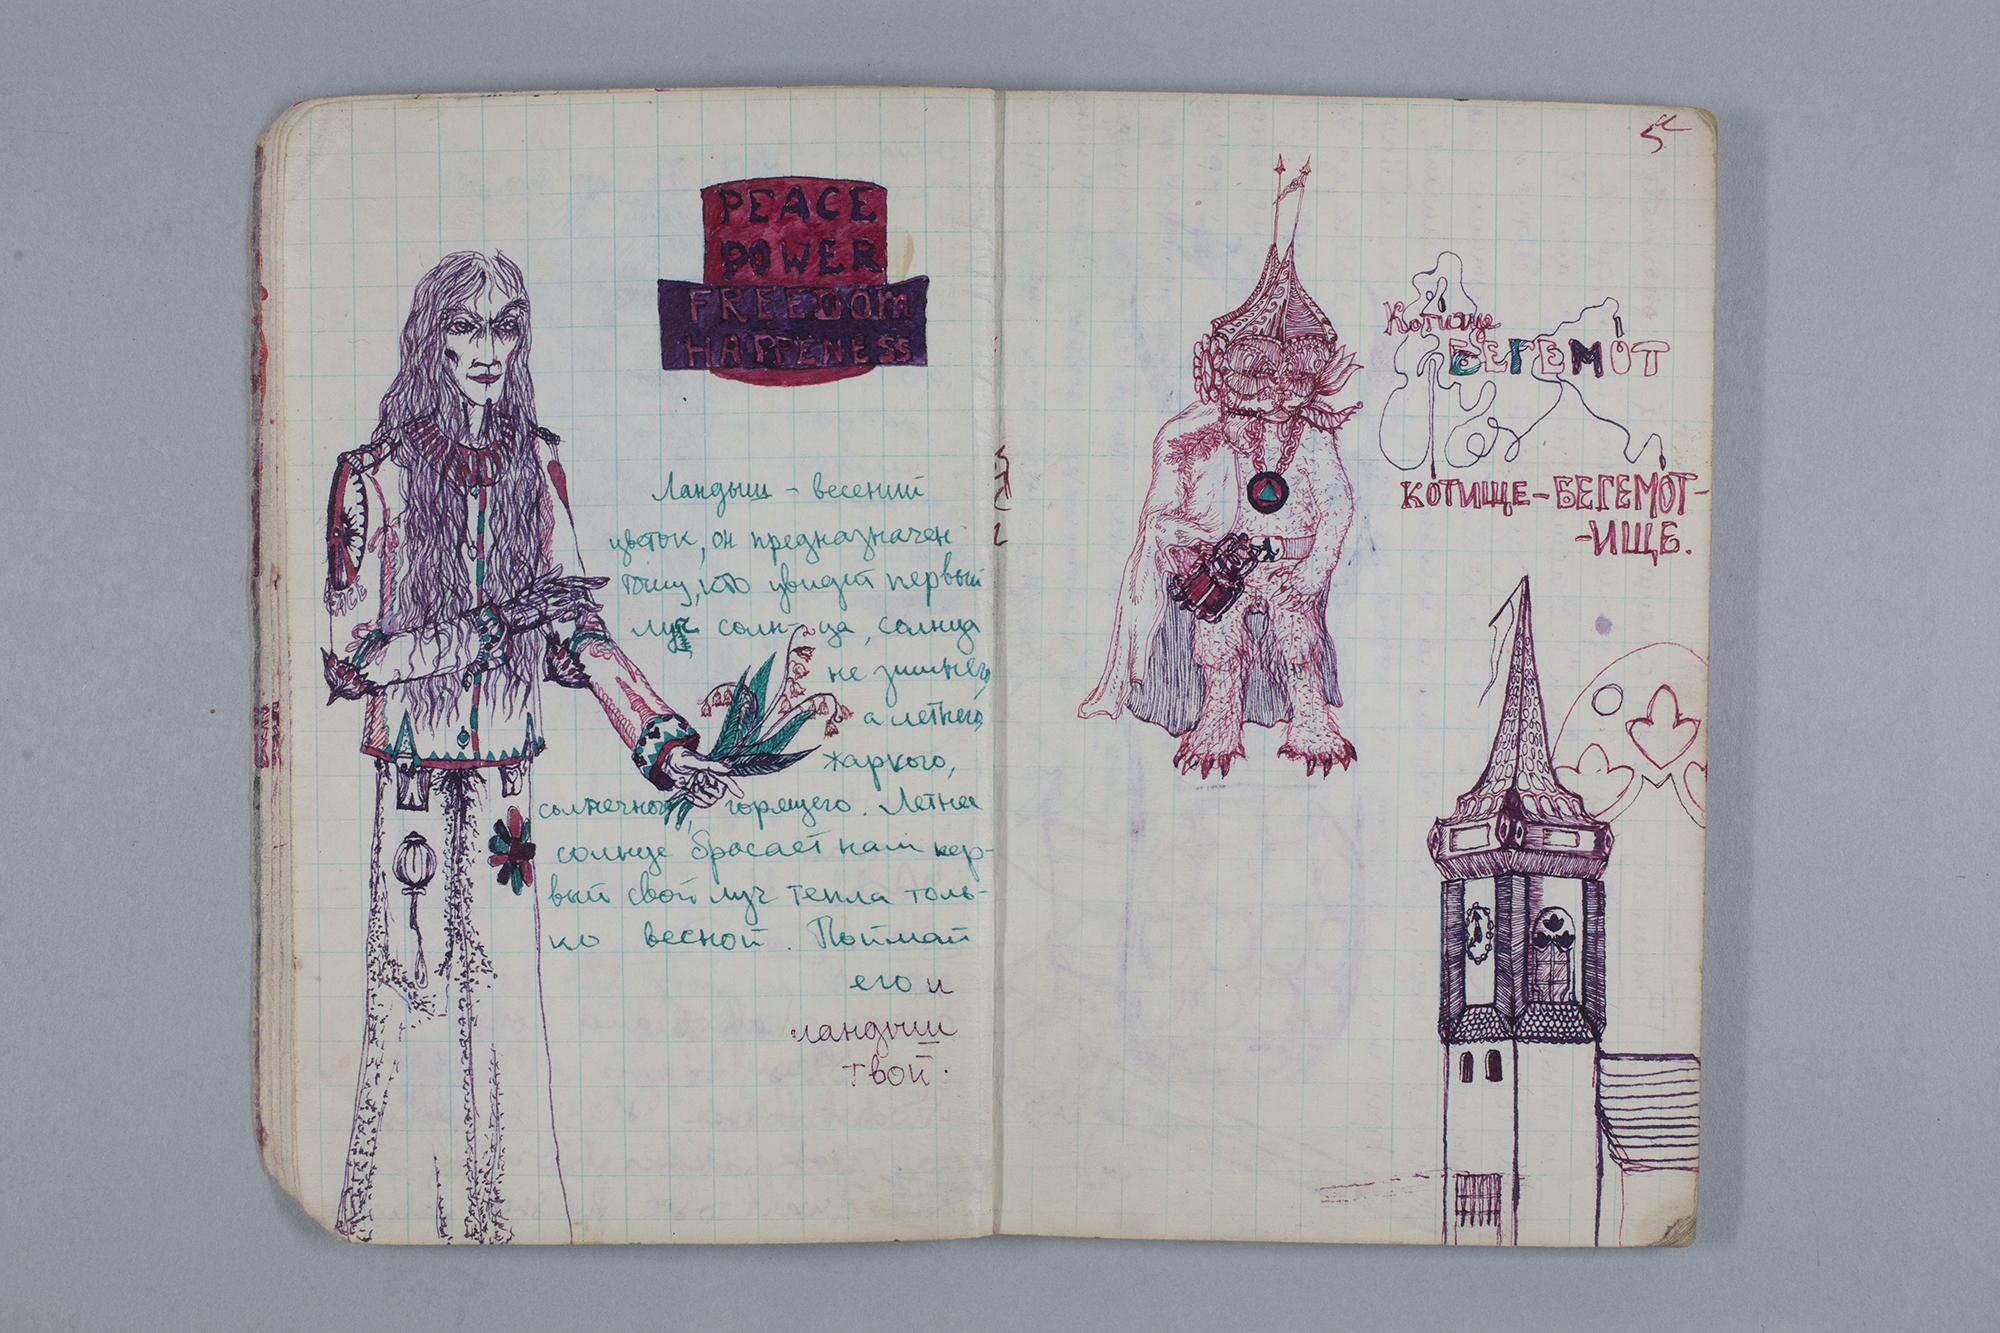 PEACE
POWER
FREEDOM
HAPPENESS
Ландыш - весений
цветок, он предназначен
тому, кто увидит первый
луч солн-ца, солнца
не зимнего,
а летнего,
жаркого,
солнечного, горящего. Летнее
солнце бросает нам пер-
вый свой луч тепла толь-
ко весной. Поймай
его и
ландыш
твой.
Котище
БЕГЕМОТ
КОТИЩЕ-БЕГЕМОТ-
-ИЩЕ.